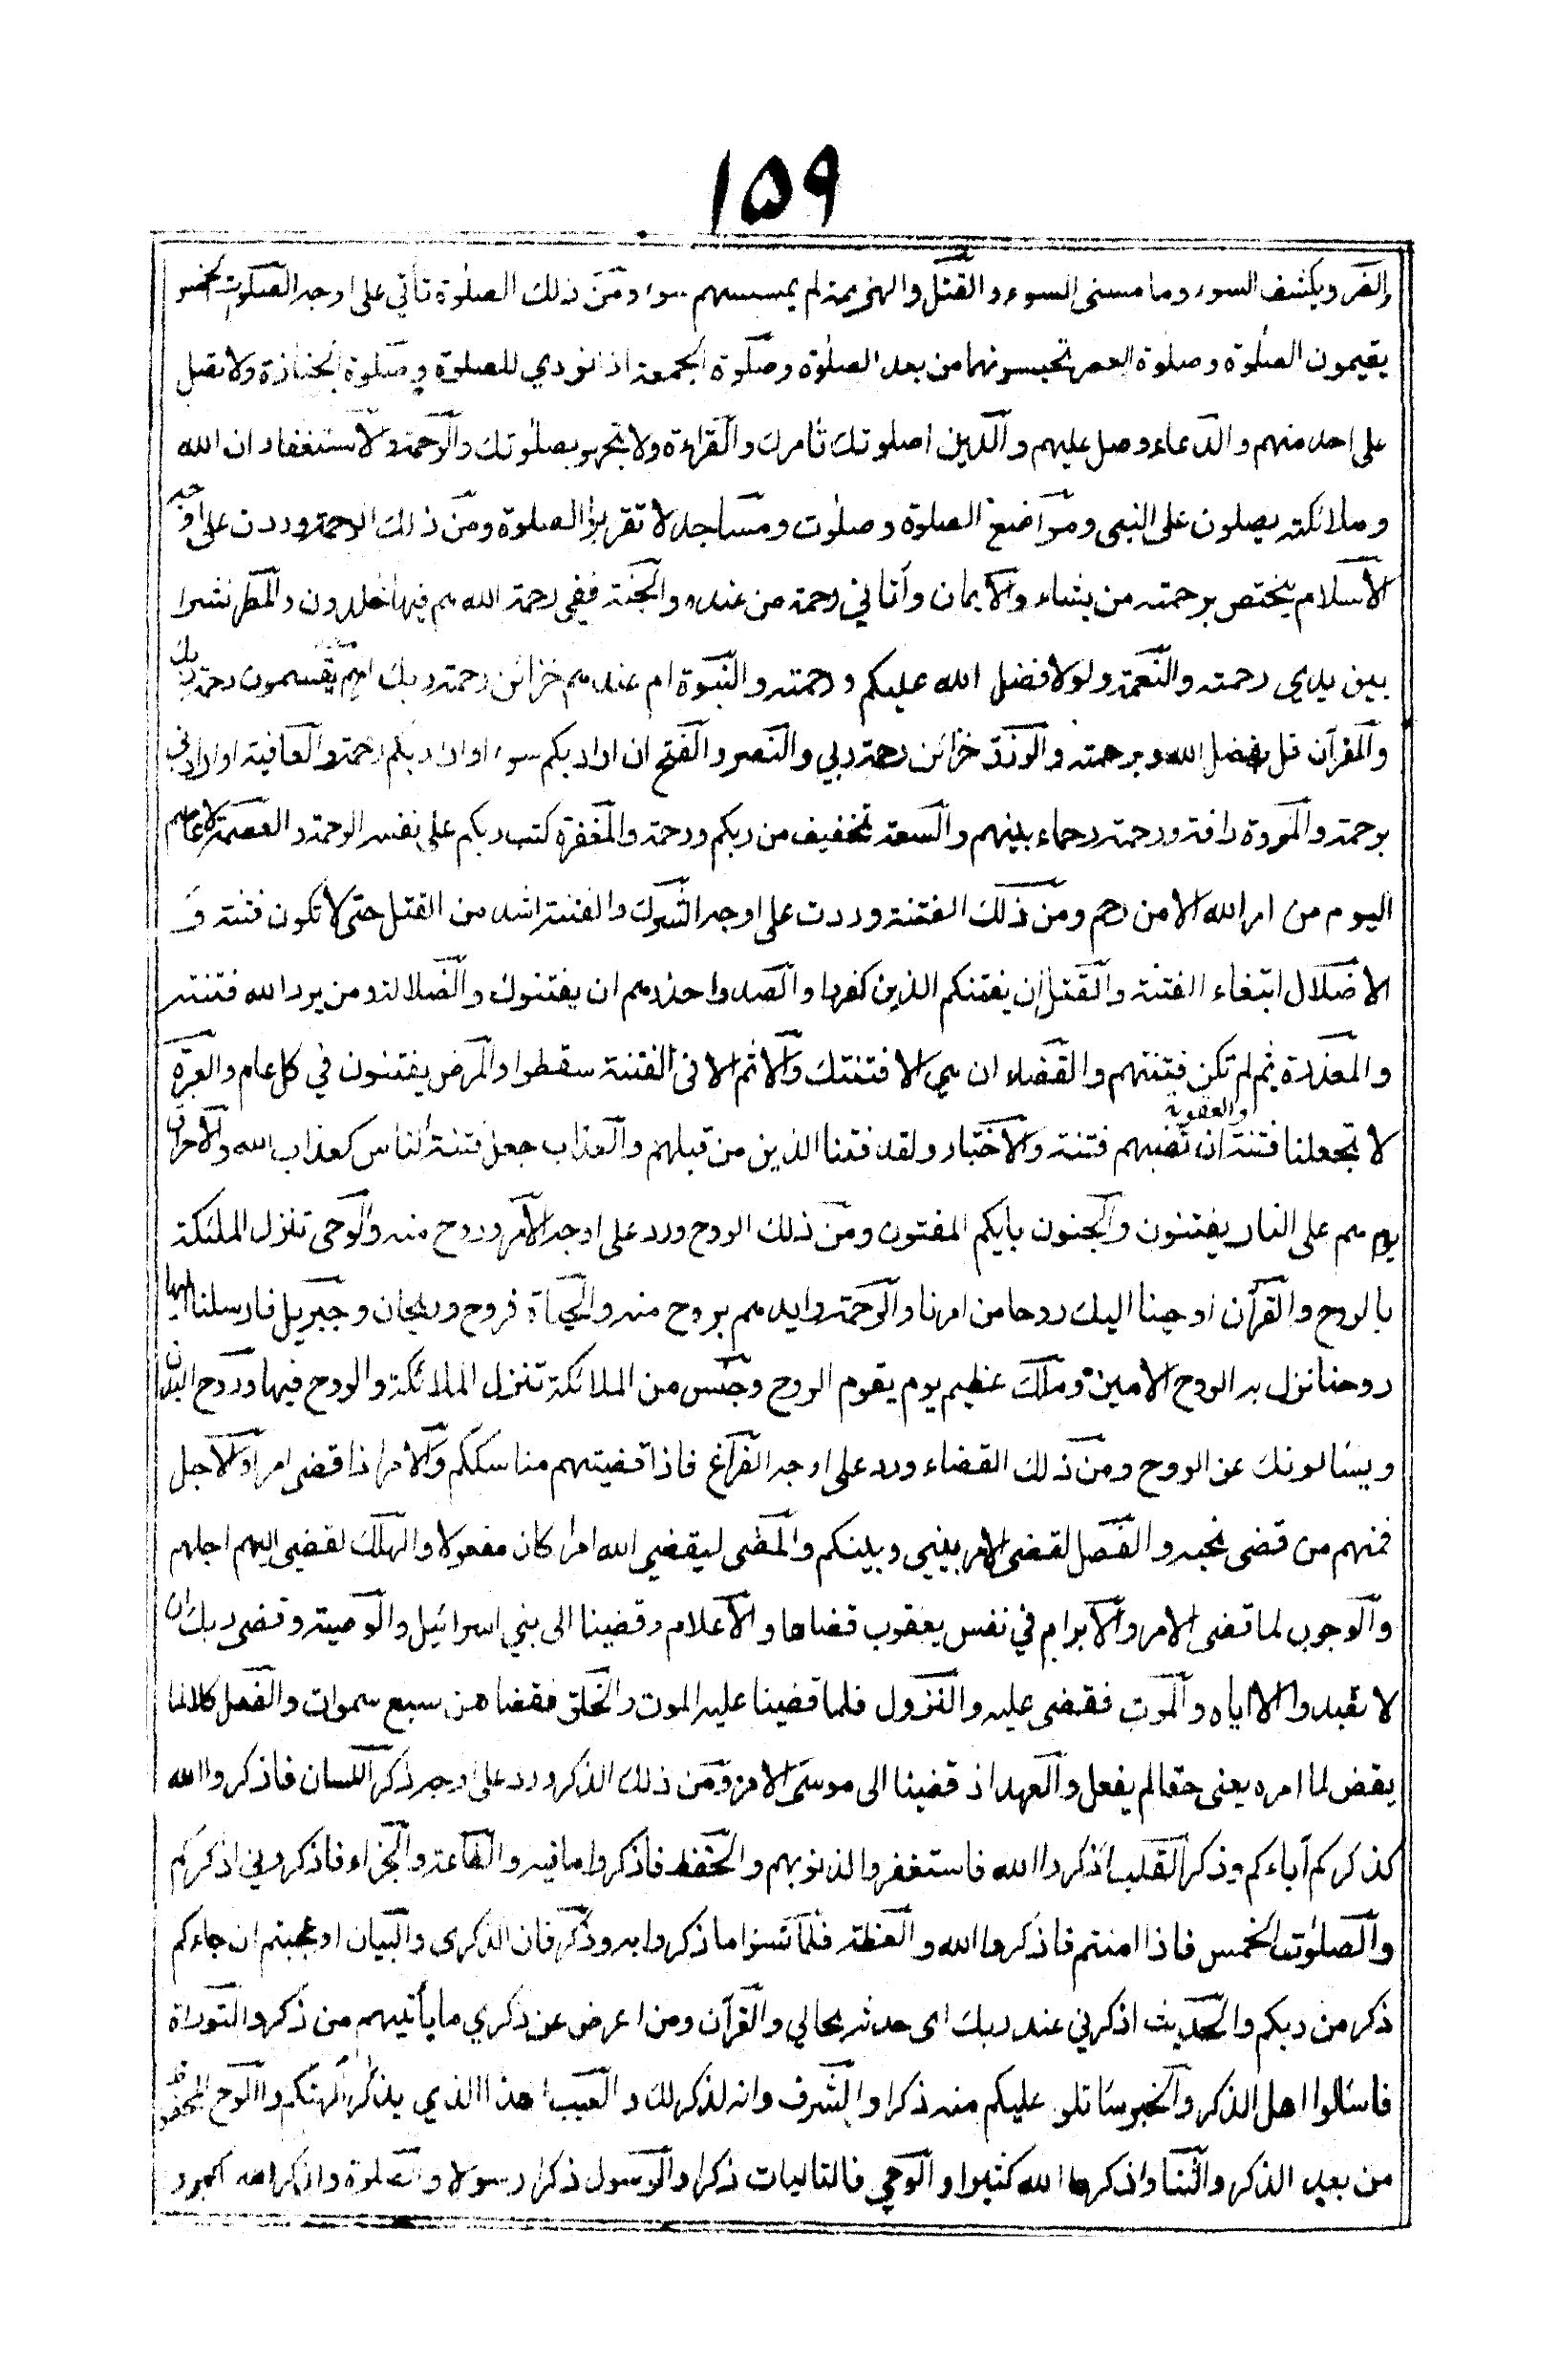 ١٥٩
والضر ويكشف السوء وما مسنى السوء والقتل والهزيمة لم يمسسهم سوء ومن ذلك الصلوة تأتي على اوجه الصلوت الخمس
يقيمون الصلوة وصلوة العصر تحبسونهما من بعد الصلوة وصلوة الجمعة اذا نودي للصلوة وصلوة الجنازة ولا تصل
على احد منهم والدعاء وصل عليهم والدين اصلوتك تأمرك والقراءة ولا تجهر بصلوتك والرحمة والاستغفار ان الله
وملائكته يصلون على النبى ومواضع الصلوة وصلوت ومساجد لا تقربوا الصلوة ومن ذلك الرحمة وردت على اوجه
الاسلام يختص برحمته من يشاء والايمان وآتاني رحمة من عنده والجنة ففي رحمة الله هم فيها خلدون والمطر نشرا
بين يدي رحمته والنعمة ولولا فضل الله عليكم ورحمته والنبوة ام عندهم خزائن رحمة ربك اهم يقسمون رحمة ربك
والقرآن قل بفضل الله وبرحمته والرزق خزائن رحمة ربي والنصر والفتح ان اراد بكم سوء او اراد بكم رحمة والعافية او ارادني
برحمة والمودة رافة ورحمة رحماء بينهم والسعة تخفيف من ربكم ورحمة والمغفرة كتب ربكم على نفسه الرحمة والعصمة لا عاصم
اليوم من امر الله الا من رحم ومن ذلك الفتنة وردت على اوجه الشرك والفتنة اشد من القتل حتى لا تكون فتنة و
الاضلال ابتغاء الفتنة والقتل ان يفتنكم الذين كفروا والصد واحذرهم ان يفتنوك والضلالة ومن يرد الله فتنته
والمعذرة ثم لم تكن فتنتهم والقضاء ان هي الا فتنتك والاثم الا فى الفتنة سقطوا والمرض يفتنون في كل عام والعبرة
لا تجعلنا فتنة والعقوبة ان تصيبهم فتنة والاختبار ولقد فتنا الذين من قبلهم والعذاب جعل فتنة الناس كعذاب الله والاحراق
يوم هم على النار يفتنون والجنون بايكم المفتون ومن ذلك الروح ورد على اوجه الامر وروح منه والوحى تنزل الملئكة
بالروح والقرآن اوحينا اليك روحا من امرنا والرحمة وايدهم بروح منه والحياة فروح وريحان وجبريل فارسلنا اليها
روحنا نزل به الروح الامين وملك عظيم يوم يقوم الروح وجنس من الملائكة تنزل الملائكة والروح فيها وروح البدن
ويسألونك عن الروح ومن ذلك القضاء ورد على اوجه الفراغ فاذا قضيتم مناسككم والامر اذا قضى امرا والاجل
فمنهم من قضى نحبه والفصل لقضى الامر بيني وبينكم والمضى ليقضي الله امرا كان مفعولا والهلاك لقضى اليهم اجلهم
والوجوب لما قضى الامر والابرام في نفس يعقوب قضاها والاعلام وقضينا الى بني اسرائيل والوصية وقضى ربك ان
لا تعبدوا الا اياه والموت فقضى عليه والنزول فلما قضينا عليه الموت والخلق فقضاهن سبع سموات والفعل كلا لما
يقض لما امره يعنى حقا لم يفعل والعهد اذ قضينا الى موسى الامر ومن ذلك الذكر ورد على اوجه ذكر اللسان فاذكروا الله
كذكركم آباءكم وذكر القلب ذكروا الله فاستغفروا لذنوبهم والحفظ فاذكروا ما فيه والطاعة والجزاء فاذكروني اذكركم
والصلوت الخمس فاذا امنتم فاذكروا الله والعظة فلما نسوا ما ذكروا به وذكر فان الذكرى والبيان اوعجبتم ان جاءكم
ذكر من ربكم والحديث اذكرني عند ربك اى حدثه بحالي والقرآن ومن اعرض عن ذكري ما يأتيهم من ذكر والتوراة
فاسألوا اهل الذكر والخبر سأتلو عليكم منه ذكرا والشرف وانه لذكر لك والعيب اهذا الذي يذكر آلهتكم واللوح المحفوظ
من بعد الذكر والثنا واذكروا الله كثيرا والوحي فالتاليات ذكرا والرسول ذكرا رسولا والصلوة ولذكر الله اكبر و